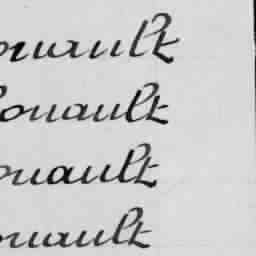 ouault
ouault
ouault
ouault